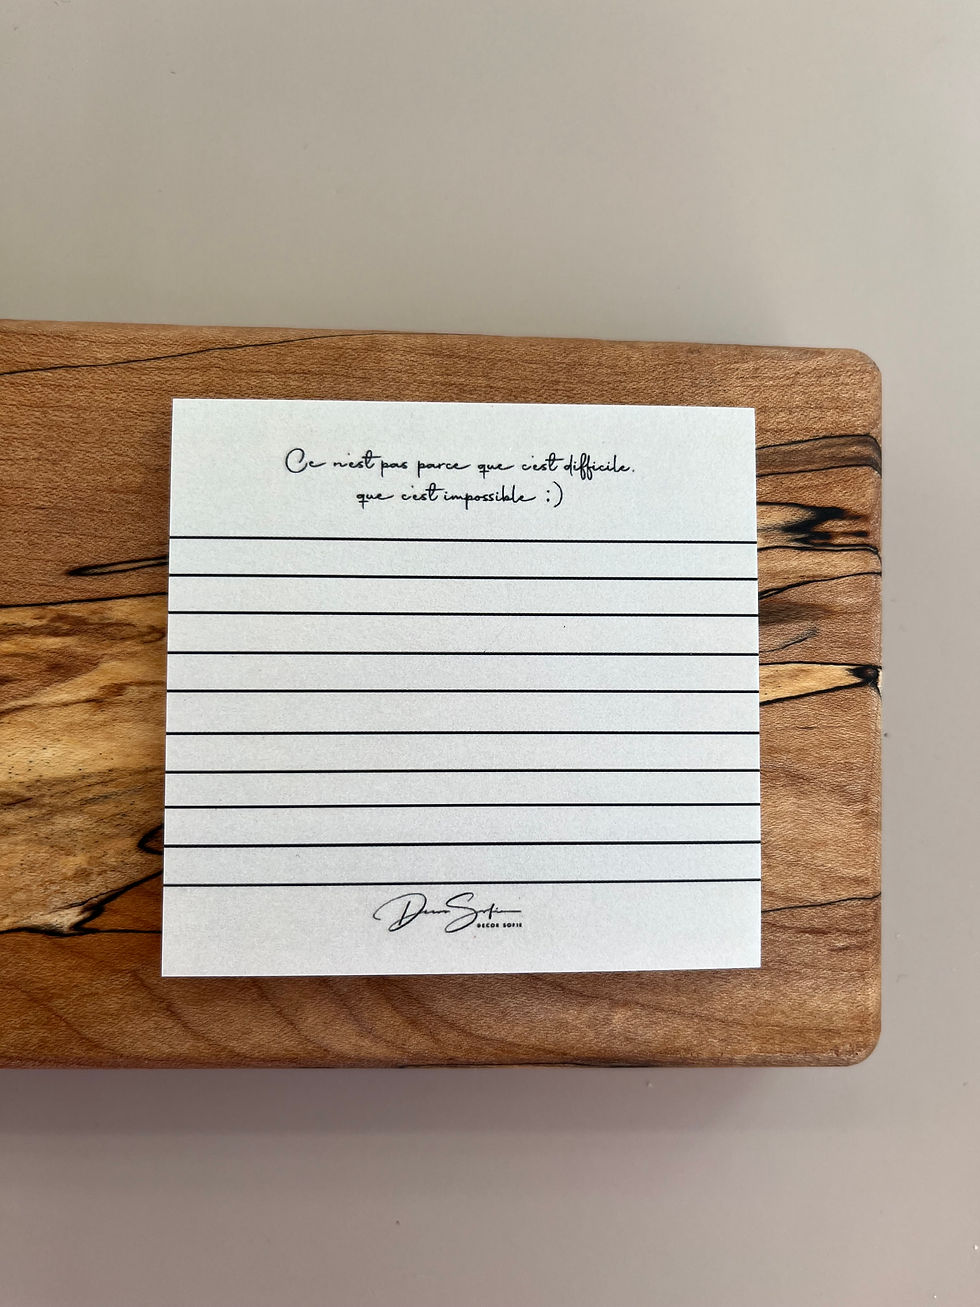 Ce n'est pas parce que c'est difficile,
que c'est impossible :)
Decor Sofie
DECOR SOFIE